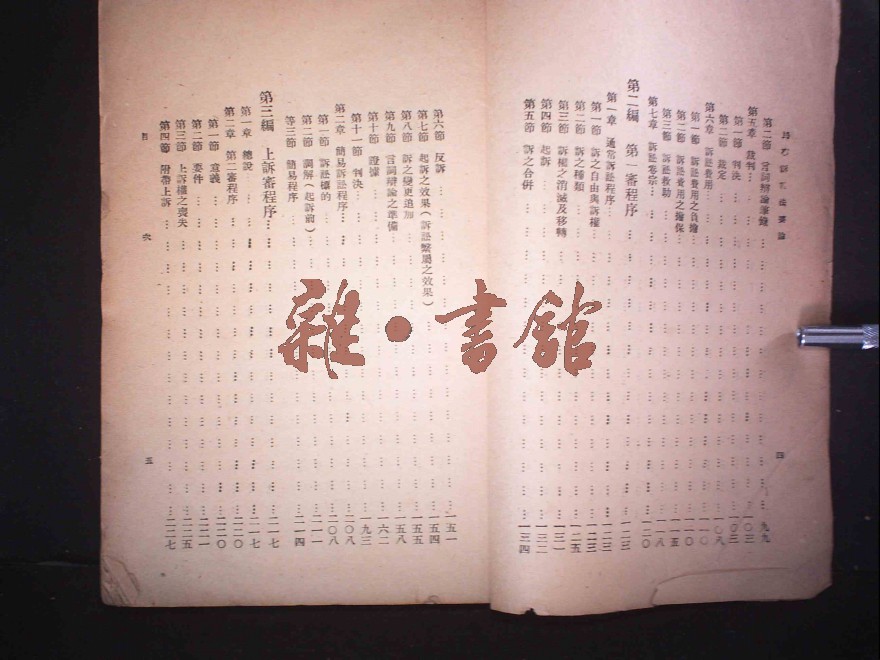 第二節 言詞辯論筆錄 九九
第五章 裁判 一〇三
第一節 判決 一〇三
第二節 裁定 一〇八
第六章 訴訟費用
第一節 訴訟費用之負擔
第二節 訴訟費用之擔保 一一五
第三節 訴訟救助 一一八
第七章 訴訟卷宗 一二〇
第二編 第一審程序 一二三
第一章 通常訴訟程序 一二三
第一節 訴之自由與訴權 一二三
第二節 訴之種類 一二五
第三節 訴權之消滅及移轉 一三一
第四節 起訴 一三二
第五節 訴之合併 一三四
四
第六節 反訴 一五一
第七節 起訴之效果(訴訟繫屬之效果) 一五四
第八節 訴之變更追加 一五五
第九節 言詞辯論之準備 一五八
第十節 證據 一六二
第十一節 判決 一九三
第二章 簡易訴訟程序 二〇八
第一節 訴訟標的 二〇八
第二節 調解(起訴前) 二一一
等三節 簡易程序 二一四
第三編 上訴審程序 二一七
第一章 總說 二一七
第二章 第二審程序 二二〇
第一節 意義 二二〇
第二節 要件 二二一
第三節 上訴權之喪失 二二五
第四節 附帶上訴 二二七
目次 五
雜·書館